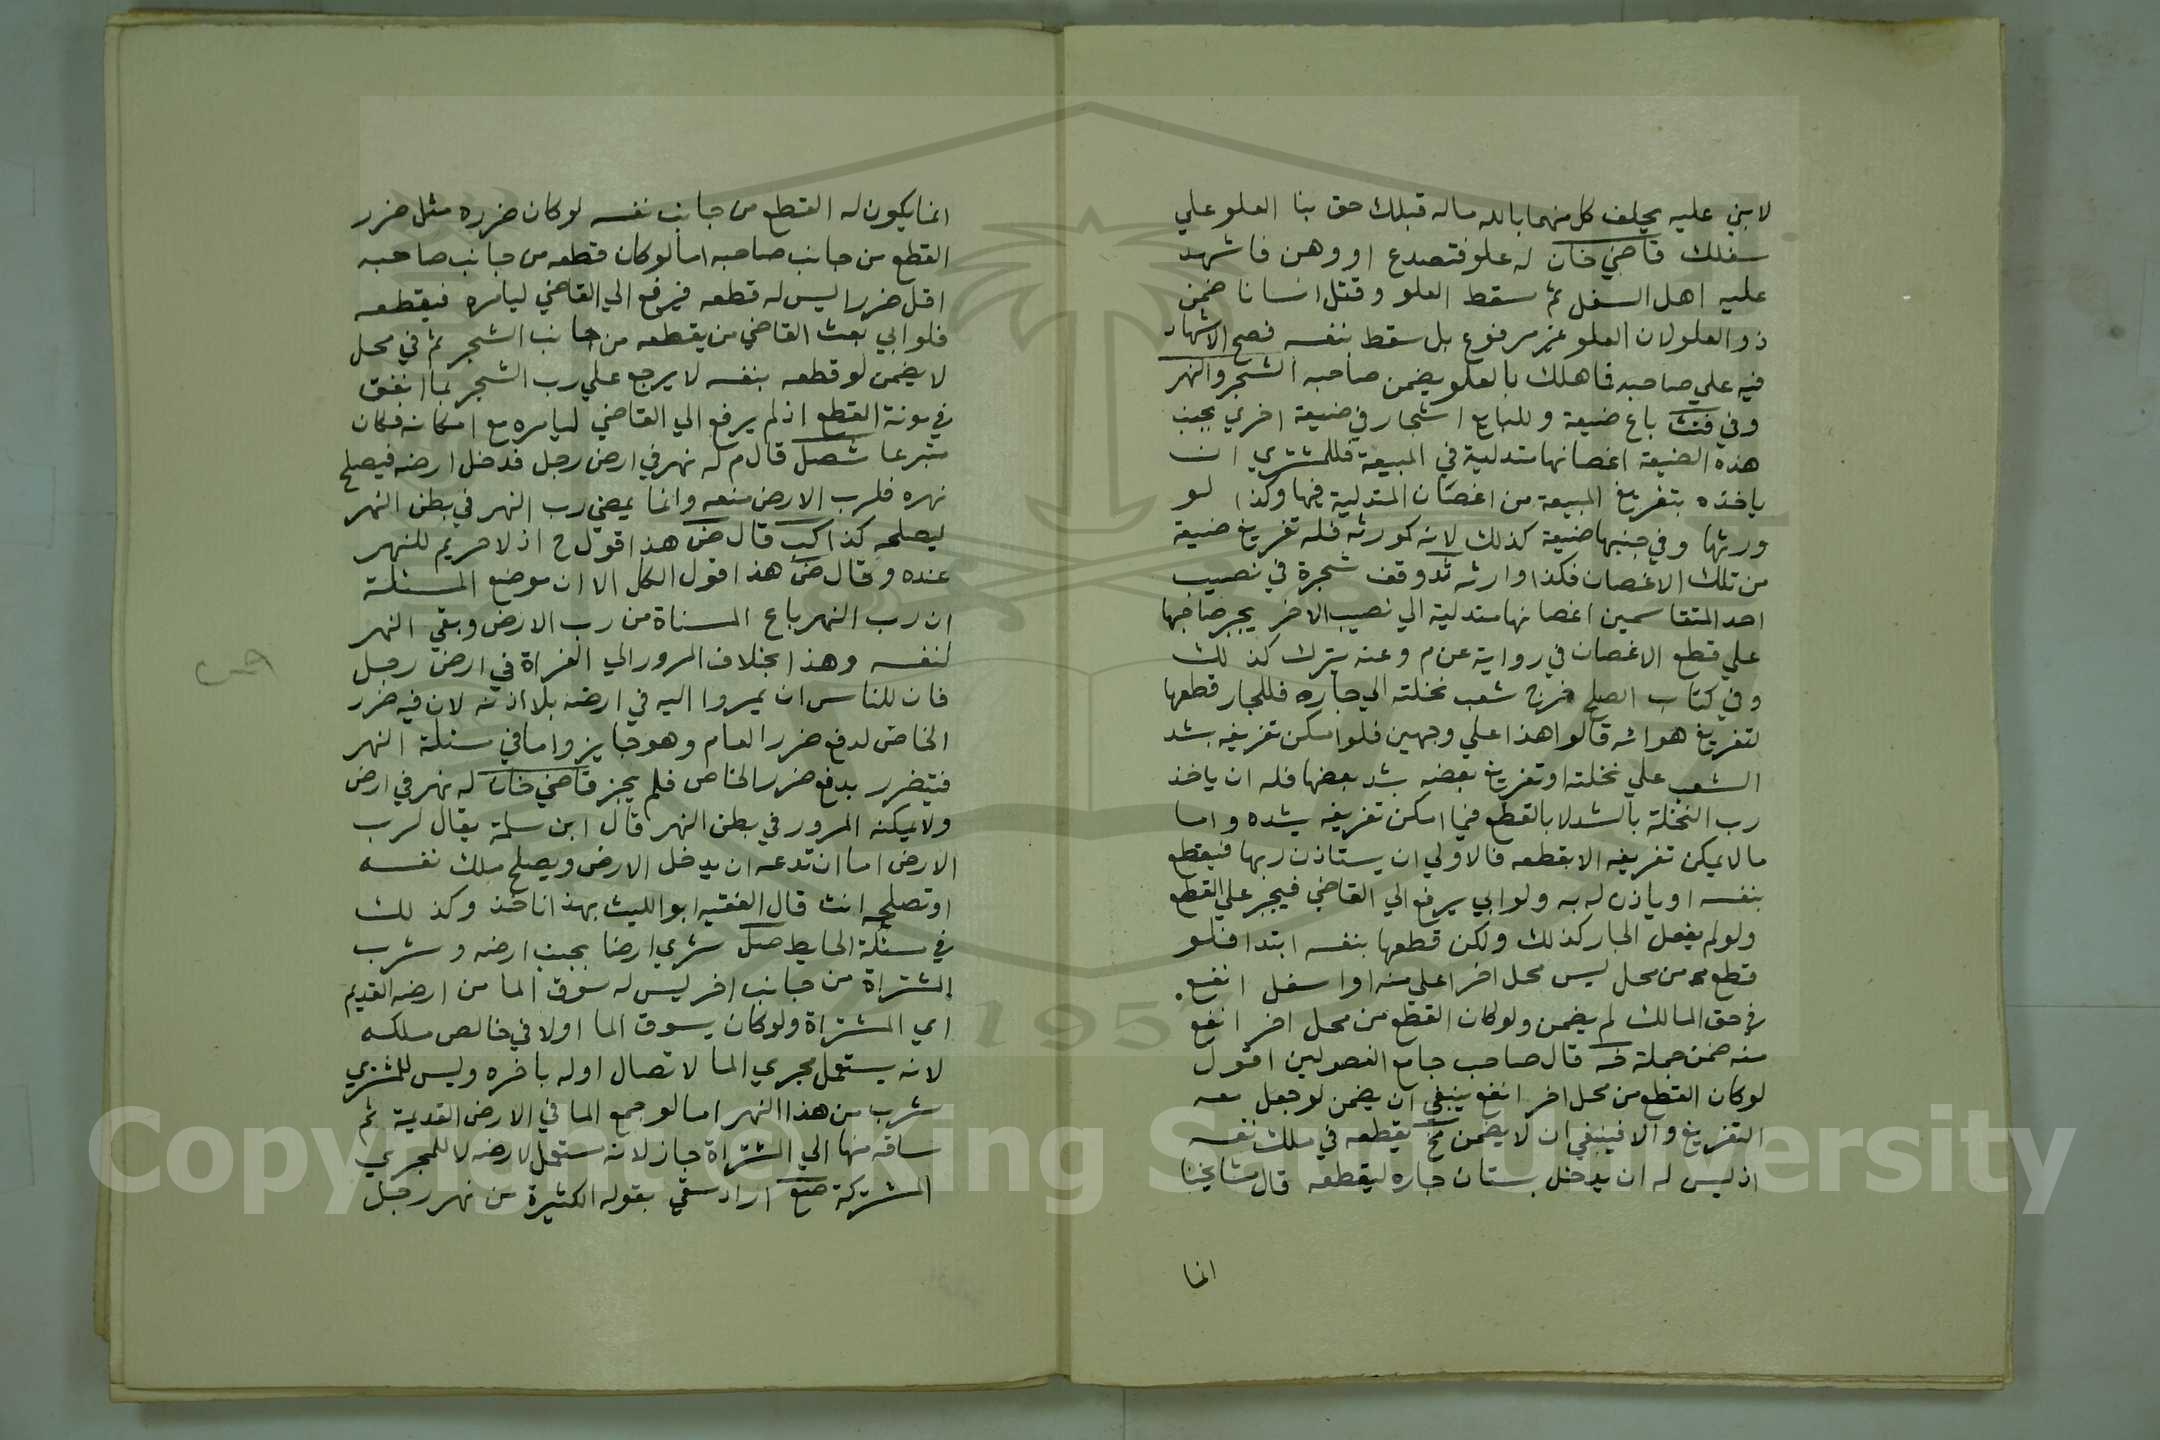 لابن عليه يحلف كل منهما بالله ماله قبلك حق بنا العلو علي
سفلك قاضي خان له علو فتصدع او وهن فاشهد
عليه اهل السفل ثم سقط العلو وقتل انسانا ضمن
ذو العلو لان العلو غير مرفوع بل سقط بنفسه فصح الاشهاد
فيه علي صاحبه فما هلك بالعلو يضمن صاحبه الشجر والنهر
وفي باع ضيعة وللبايع اشجار في ضيعة اخري بجنب
هذه الضيعة اغصانها متدلية في المبيعة فللمشتري ان
ياخذه بتفريغ المبيعة من اغصان المتدلية فيها وكذا لو
ورثها وفي جنبها ضيعة كذلك لانه كمورثه فله تفريغ ضيعة
من تلك الاغصان فكذا وارثه وقف شجرة في نصيب
احد المتقاسمين اغصانها متدلية الي نصيب الاخر يجبر صاحبها
علي قطع الاغصان في رواية عن م وعنه يترك كذلك
وفي كتاب الصلح خرج شعب نخلته الي جاره فللجار قطعها
لتفريغ هوائه قالوا هذا علي وجهين فلو امكن تفريغه بشد
الشعب علي نخلته او تفريغ بعضه بشد بعضها فله ان ياخذ
رب النخلة بالشد لا بالقطع فيما امكن تفريغه بشده واما
ما لا يمكن تفريغه الا بقطعه فالاولي ان يستاذن ربها فيقطع
بنفسه او ياذن له به ولو ابي يرفع الي القاضي فيجبر علي القطع
ولو لم يفعل الجار كذلك ولكن قطعها بنفسه ابتدا فلو
قطع من محل ليس محل اخر اعلي منه او اسفل انفع
في حق المالك لم يضمن ولو كان القطع من محل اخر انفع
منه ضمن جملة قال صاحب جامع الفصولين اقول
لو كان القطع من محل اخر انفع ينبغي ان يضمن لو جعل معه
التفريغ والا فينبغي ان لا يضمن يقطعه في ملك نفسه
اذ ليس له ان يدخل بستان جاره ليقطعه قال مشايخنا
انما
انما يكون له القطع من جانب نفسه لو كان ضرره مثل ضرر
القطع من جانب صاحبه اما لو كان قطعه من جانب صاحبه
اقل ضررا ليس له قطعه فيرفع الي القاضي ليامره فيقطعه
فلو ابي بعث القاضي من يقطعه من جانب الشجر ثم في محل
لا يضمن لو قطعه بنفسه لا يرجع علي رب الشجر بما انفق
في مونة القطع اذ لم يرفع الي القاضي ليامره مع امكانه فكان
متبرعا قال م له نهر في ارض رجل فدخل ارضه فيصلح
نهره فلرب الارض منعه وانما يمضي رب النهر في بطن النهر
ليصلحه كذا قال ض هذا قول ح اذ لا حريم للنهر
عنده وقال ض هذا قول الكل الا ان موضع المسئلة
ان رب النهر باع المسناة من رب الارض وبقي النهر
لنفسه وهذا بخلاف المرور الي الفراة في ارض رجل
فان للناس ان يمروا اليه في ارضه بلا اذنه لان فيه ضرر
الخاص لدفع ضرر العام وهو جايز واما في مسئلة النهر
فيتضرر بدفع ضرر الخاص فلم يجز قاضي خان له نهر في ارض
ولا يمكنه المرور في بطن النهر قال ابن سلمة يقال لرب
الارض اما ان تدعه ان يدخل الارض ويصلح ملك نفسه
او تصلحه انت قال الفقيه ابو الليث بهذا ناخذ وكذلك
في مسئلة الحايط صل شري ارضا بجنب ارضه وشرب
المشتراة من جانب اخر ليس له سوق الما من ارضه القديم
اي المشتراة ولو كان يسوق الما اولا في خالص ملكه
لانه يستعمل مجري الما لاتصال اوله باخره وليس للمشتري
شرب من هذا النهر اما لو جمع الما في الارض القديمة ثم
ساقه منها الي المشتراة جاز لانه مستعمل لارضه لا للمجري
المشتركة اراد سقي بقوله الكثيرة من نهر رجل
Copyright © King Saud University
1957